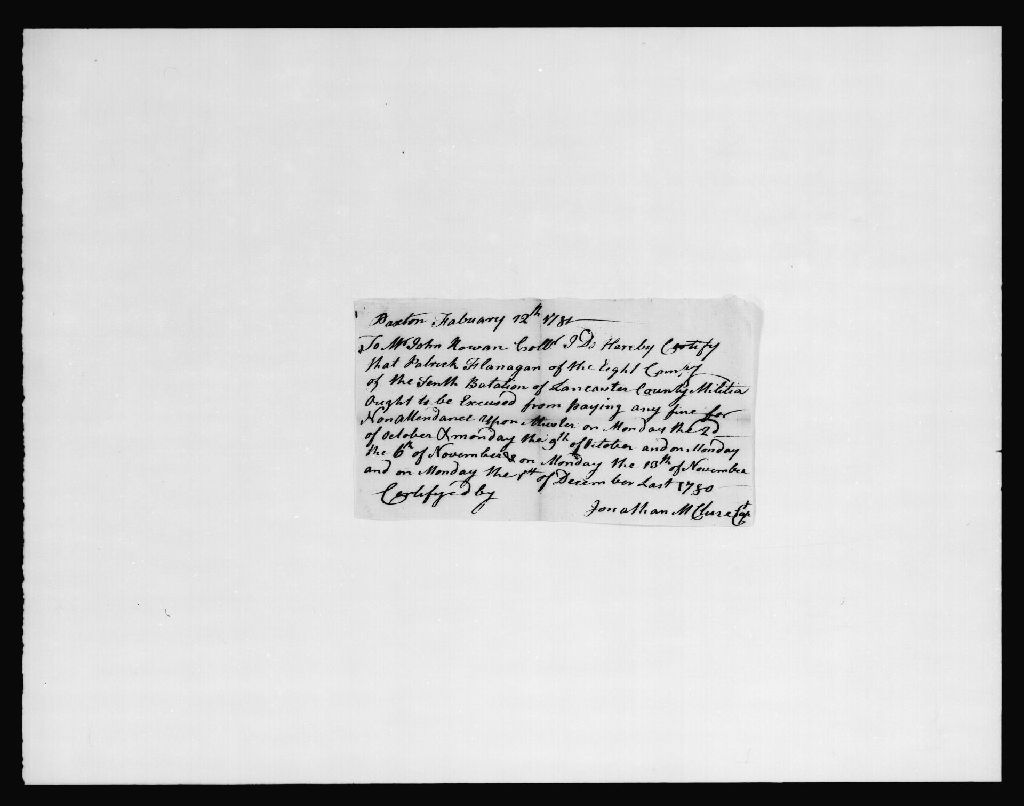 Paxton Fabuary 12th 1781
To Mr John Rowan Collr I Do Hereby Certify
that Patrick Flanagan of the Eight Compy
of the Tenth Batalion of Lancaster County Militia
Ought to be Excused from paying any fine for
Non Attendance Upon Muster on Monday the 2d
of October & monday the 9th of October and on Monday
the 6th of November & on Monday the 13th of November
and on Monday the of December Last 1780
Certifyed by
Jonathan McClure Cpt